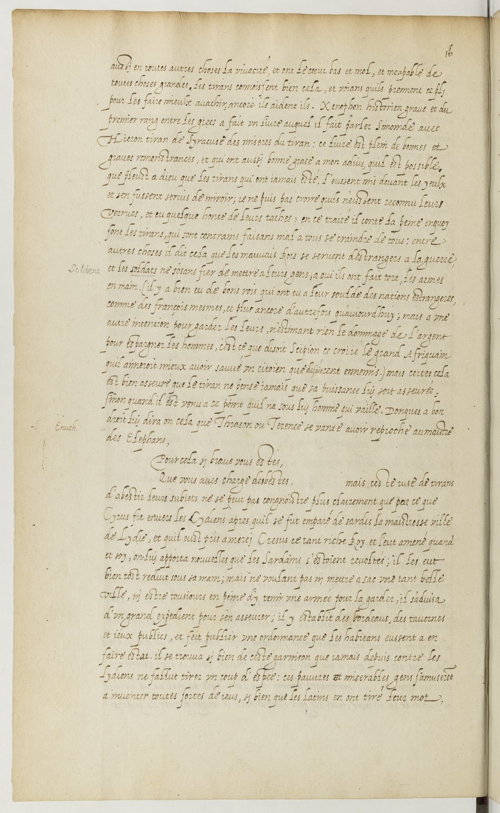 16
aussi en toutes autres choses la vivacité, et ont le cœur bas et mol, et incapable de
toutes choses grandes. Les tirans connoissent bien cela, et voians quils prennent ce pli
pour les faire mieulx avachir ancore ils aident ils. Xenophon historien grave et du
premier rang entre les grecs a fait un livre auquel il fait parler Simonide avec
Hieron tiran de Syracuse des miseres du tiran: ce livre est plein de bonnes et
graves remonstrances, et qui ont aussi bonne grace a mon advis, quil est possible.
que pleust a dieu que les tirans qui ont iamais esté, l'eussent mis devant les yeulx
et s'en fussent servis de miroir; ie ne puis pas croire quils n'eussent reconnu leurs
verrues, et eu quelque honte de leurs taches: en ce traité il conte la peine enquoy
sont les tirans, qui sont contrains faisans mal a tous se craindre de tous: entre
autres choses il dit cela que les mauvais Rois se servent d'estrangers a la guerre
et les soldats ne s'osans fier de mettre a leurs gens, a qui ils ont fait tort, les armes
en main. (il y a bien eu de bons rois qui ont eu a leur soulde des nations estrangeres,
comme des françois mesmes, et plus ancore d'autrefois quaujourdhuy; mais a une
autre intention pour garder les leurs, n'estimant rien le dommage de l'argent
pour espargner les hommes, c'est ce que disoit Scipion ce croi ie le grand Afriquain
quil aimeroit mieux avoir sauvé un citoien que ennemis.) mais certes cela
est bien asseuré que le tiran ne pense iamais que sa puissance luy soit asseuree,
sinon quand il est venu a ce point quil na sous luy homme qui vaille. Donques a bon
droit luy dira on cela que Thrason ou Terence se vante avoir reproché au maistre
des Elephans,
Pour cela si brave vous estes,
Que vous aves charge des bestes. mais ceste ruse de tirans
d'abestir leurs subiets ne se peut pas congnoistre plus clairement que par ce que
Cyrus fit envers les Lydiens apres quil se fut emparé de Sardis la maistresse ville
de Lydie, et quil eust pris a merci Cresus ce tant riche Roy et leut amené quand
et soy, on luy apporta nouvelles que les Sardains s'estoient revoltés; il les eut
bien tost reduit sous sa main; mais ne voulant pas ni mettre a sac une tant belle
ville, ni estre tousiours en peine d'y tenir une armee pour la garder, il s'advisa
d'un grand expedient pour s'en asseurer; il y establit des bordeaux, des tavernes
et ieux publics, et feit publier une ordonnance que les habitans eussent a en
faire estat. il se trouva si bien de ceste garnison que iamais depuis contre les
Lydiens ne fallut tirer un coup d'espee: ces pauvres et miserables gens s'amuserent
a inventer toutes sortes de ieus, si bien que les latins en ont tiré leur mot,